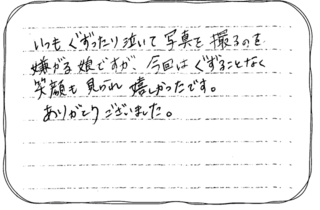 いつもぐずったり泣いて写真を撮るのを
嫌がる娘ですが、今回はぐずることなく
笑顔も見られ嬉しかったです。
ありがとうございました。